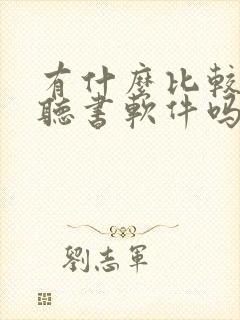 有什麼比較
聽書軟件吗
劉志軍